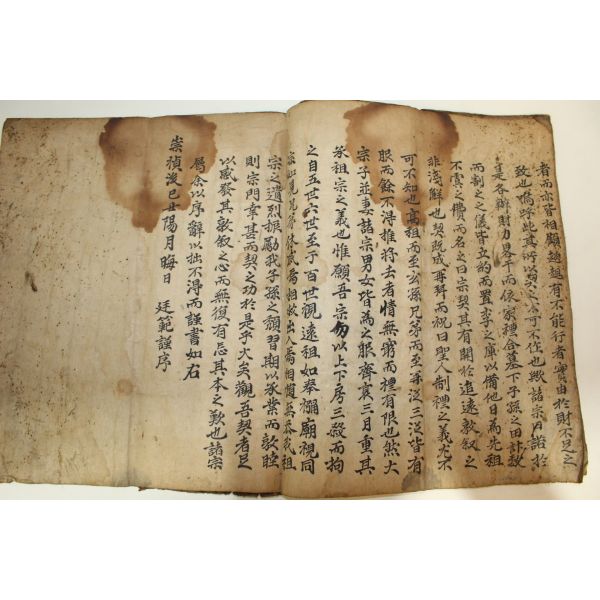 者而亦皆相顧趑趄有不能行者實由於財不足之
致也嗚呼此眞所以契之不可不作也歟諸宗
各辦財力畧干而依家禮合墓下子孫之田計
而制之之儀皆立約而置
不虞之費而名之曰宗契其有關於追遠敦叙之
非淺鮮也契既成再拜而祝曰聖人制禮之義尤不
可不知也高祖而至玄孫兄弟而至再從三從皆有
服而餘不得推將去者情無窮而禮有限也然大
宗子並妻諸宗男女皆爲之服齊衰三月重其
承祖宗之義也惟願吾宗勿以上下房三殺而拘
之自五世六世至于百世視遠祖如奉禰廟視同
相救出入焉相
宗之遺烈振勵我子孫之頹習期以承業而敦睦
則宗門幸甚而契之功於是乎大矣觀吾契者足
以感發其敦叙之心而無復有忘其本之歎也諸宗
屬余以序辭以拙不得而謹書如右
崇禎後己丑陽月晦日 廷範謹序